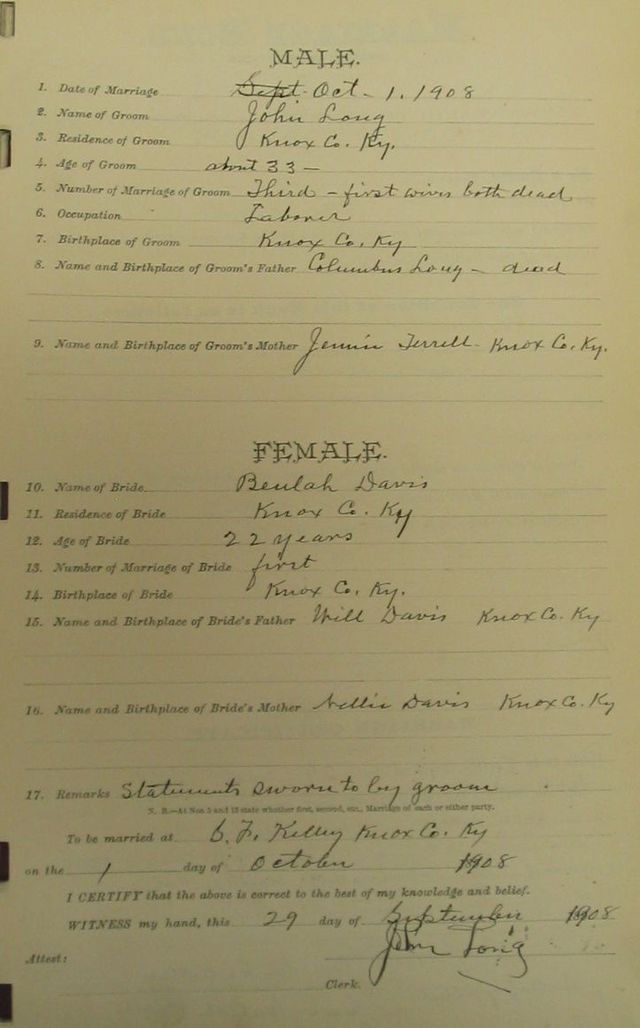 MALE.
1. Date of Marriage Sept Oct - 1. 1908
2. Name of Groom John Long
3. Residence of Groom Knox Co. Ky.
4. Age of Groom about 33 —
5. Number of Marriage of Groom Third - first wives both dead
6. Occupation Laborer
7. Birthplace of Groom Knox Co. Ky
8. Name and Birthplace of Groom's Father Columbus Long - dead
9. Name and Birthplace of Groom's Mother Jennie Terrell - Knox Co. Ky.
FEMALE.
10. Name of Bride Beulah Davis
11. Residence of Bride Knox Co. Ky
12. Age of Bride 22 years
13. Number of Marriage of Bride first
14. Birthplace of Bride Knox Co. Ky.
15. Name and Birthplace of Bride's Father Will Davis Knox Co. Ky
16. Name and Birthplace of Bride's Mother Nellie Davis Knox Co. Ky
17. Remarks Statements sworn to by groom
N. B.—At Nos 5 and 13 state whether first, second, etc., Marriage of each or either party.
To be married at F. Kelley Knox Co. Ky
on the 1 day of October 1908
I CERTIFY that the above is correct to the best of my knowledge and belief.
WITNESS my hand, this 29 day of September 1908
John Long
Attest:
Clerk.